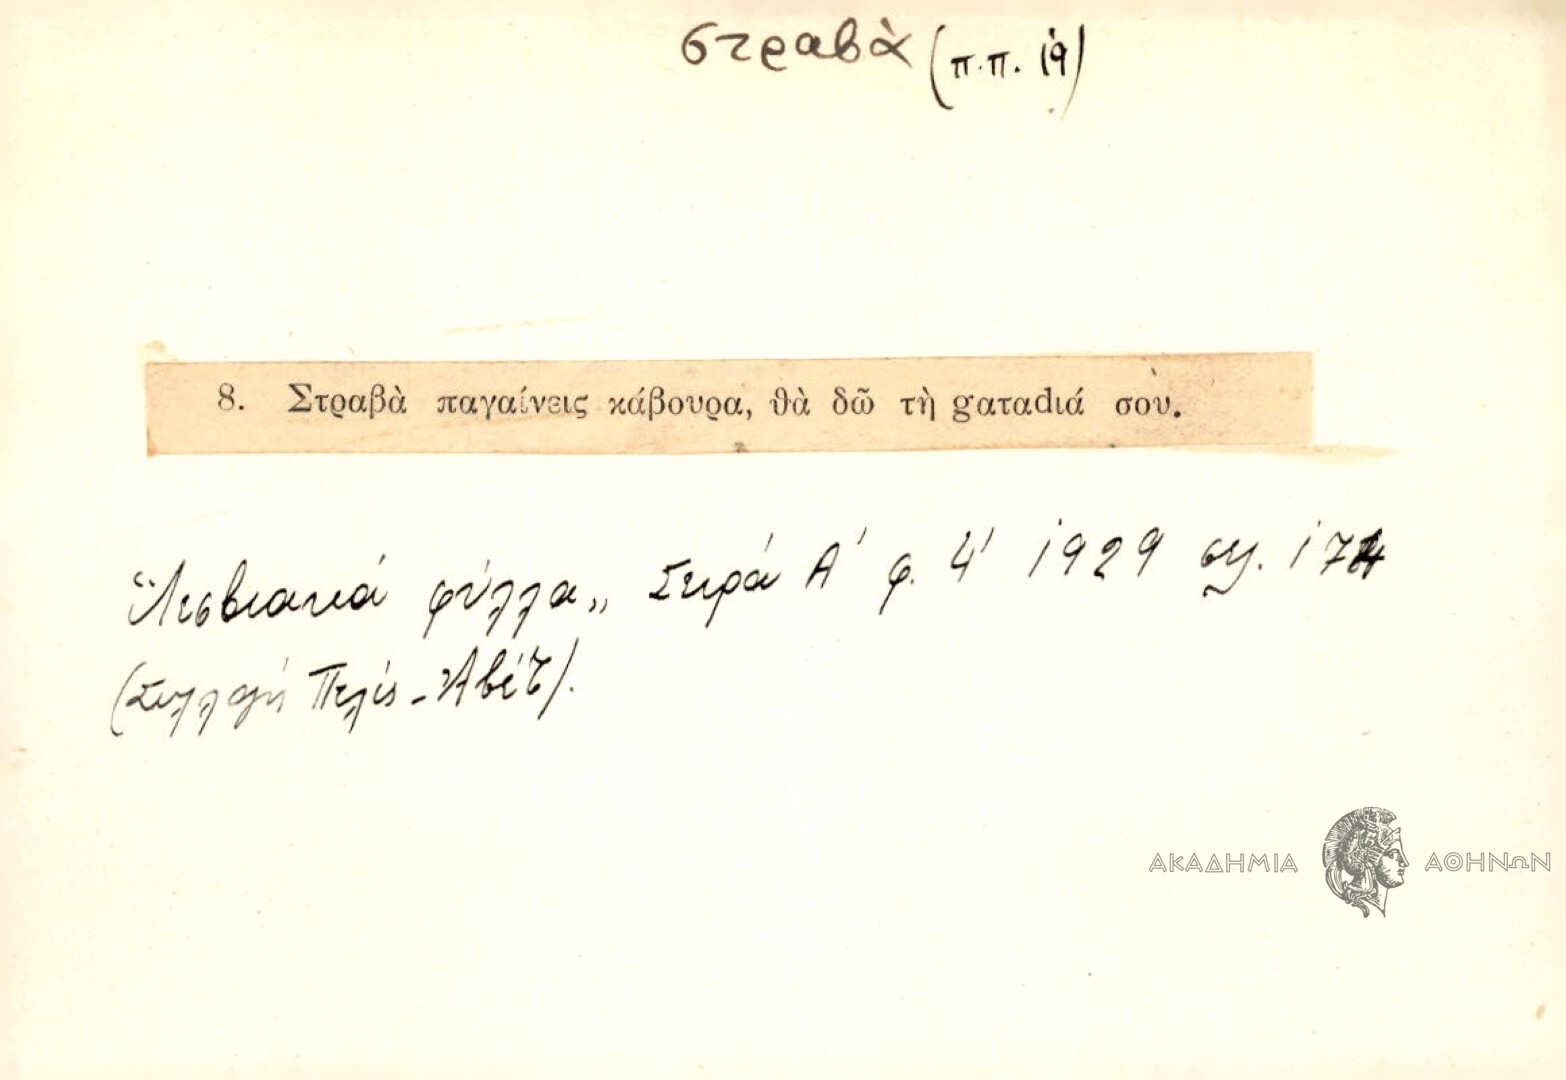 στραβὰ (π.π. 19)
8. Στραβὰ παγαίνεις κάβουρα, θὰ δῶ τὴ gαταdιά σου.
"Λεσβιακά φύλλα„ Σειρά Α' φ. 4' 1929 σελ. 174
(Συλλογή Πελίς - Ἀβέτ).
ΑΚΑΔΗΜΙΑ ΑΘΗΝΩΝ